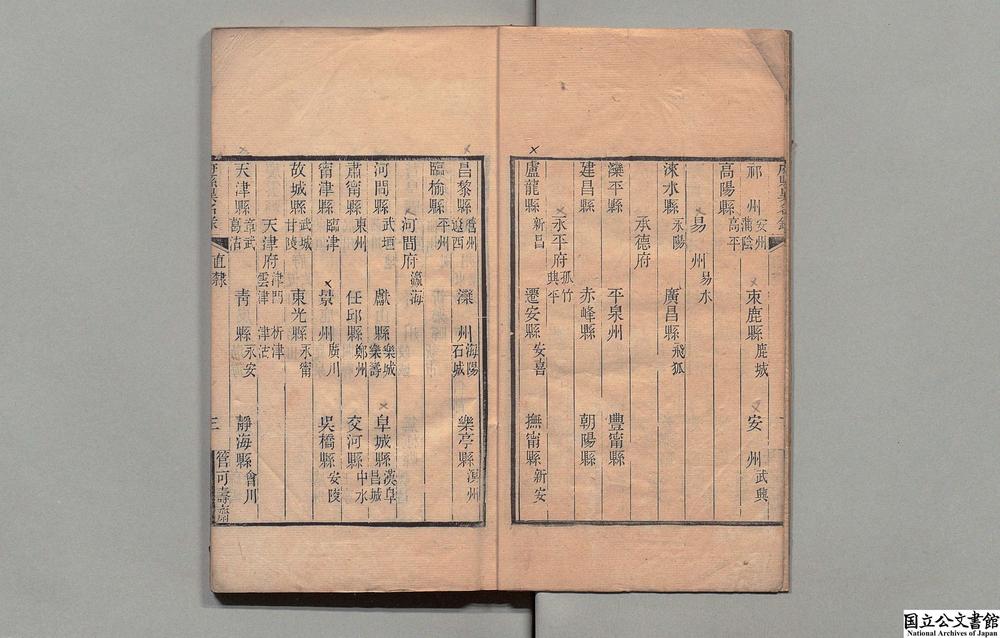 祁州 安州 蒲陰 束鹿縣 鹿城 安州 武興
高陽縣 高平
易州 易水
淶水縣 永陽 廣昌縣 飛狐
承德府
灤平縣 平泉州 豐甯縣
建昌縣 赤峰縣 朝陽縣
永平府 孤竹 興平
盧龍縣 新昌 遷安縣 安喜 撫甯縣 新安
昌黎縣 營州 遼西 灤州 海陽 石城 樂亭縣 溟州
臨榆縣 平州
河間府 瀛海
河間縣 武垣 獻縣 樂城 樂壽 阜城縣 漢阜 昌城
肅甯縣 東州 任邱縣 鄚州 交河縣 中水
甯津縣 臨津 景州 廣川 吳橋縣 安陵
故城縣 武城 甘陵 東光縣 永甯
天津府 津門 析津 雲津 津沽
天津縣 章武 葛沽 青縣 永安 靜海縣 會川
直隸
三
管可壽齋
国立公文書館
National Archives of Japan